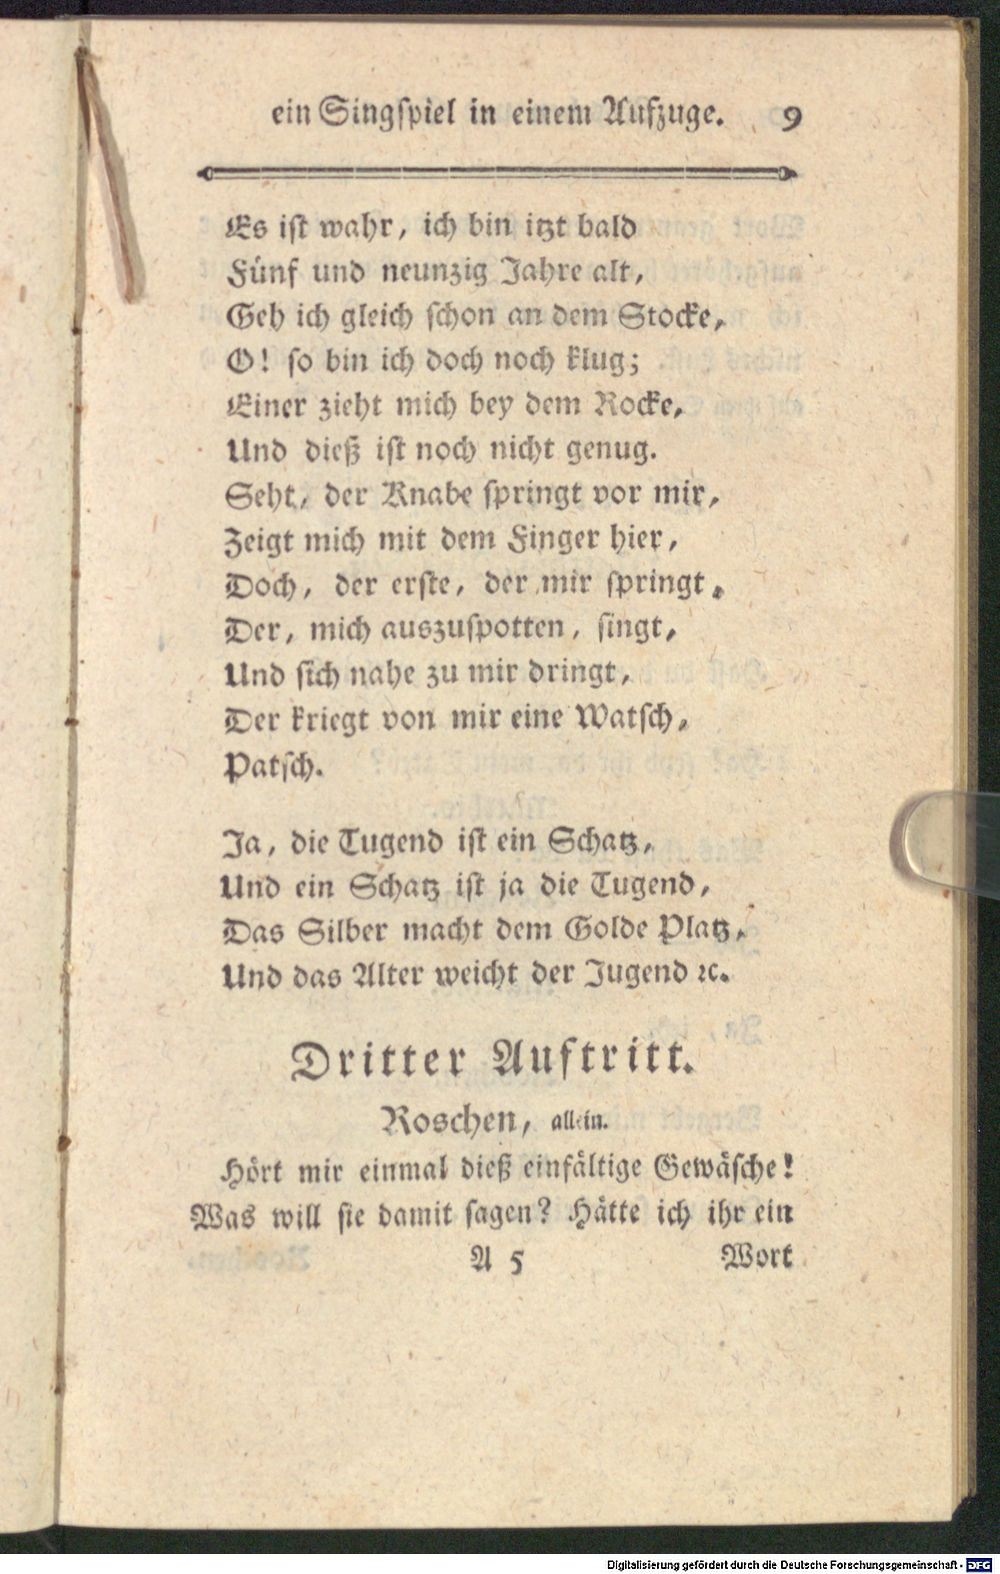 ein Singſpiel in einem Aufzuge. 9
Es iſt wahr, ich bin itzt bald
Fünf und neunzig Jahre alt,
Geh ich gleich ſchon an dem Stocke,
O! ſo bin ich doch noch klug;
Einer zieht mich bey dem Rocke,
Und dieß iſt noch nicht genug.
Seht, der Knabe ſpringt vor mir,
Zeigt mich mit dem Finger hier,
Doch, der erſte, der mir ſpringt,
Der, mich auszuſpotten, ſingt,
Und ſich nahe zu mir dringt,
Der kriegt von mir eine Watſch,
Patſch.
Ja, die Tugend iſt ein Schatz,
Und ein Schatz iſt ja die Tugend,
Das Silber macht dem Golde Platz,
Und das Alter weicht der Jugend ꝛc.
Dritter Auftritt.
Roschen, allein.
Hört mir einmal dieß einfältige Gewäſche!
Was will ſie damit ſagen? Hätte ich ihr ein
A 5 Wort
Digitalisierung gefördert durch die Deutsche Forschungsgemeinschaft - DFG